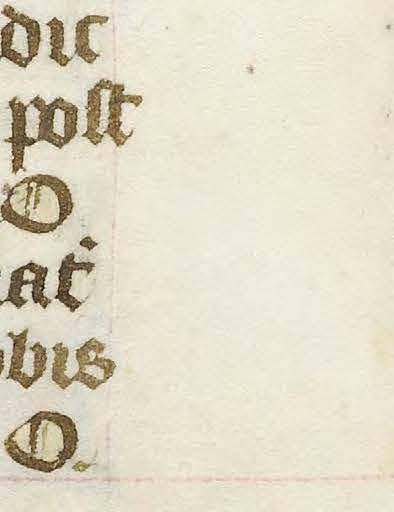 dic
post
O
at
bis
O.